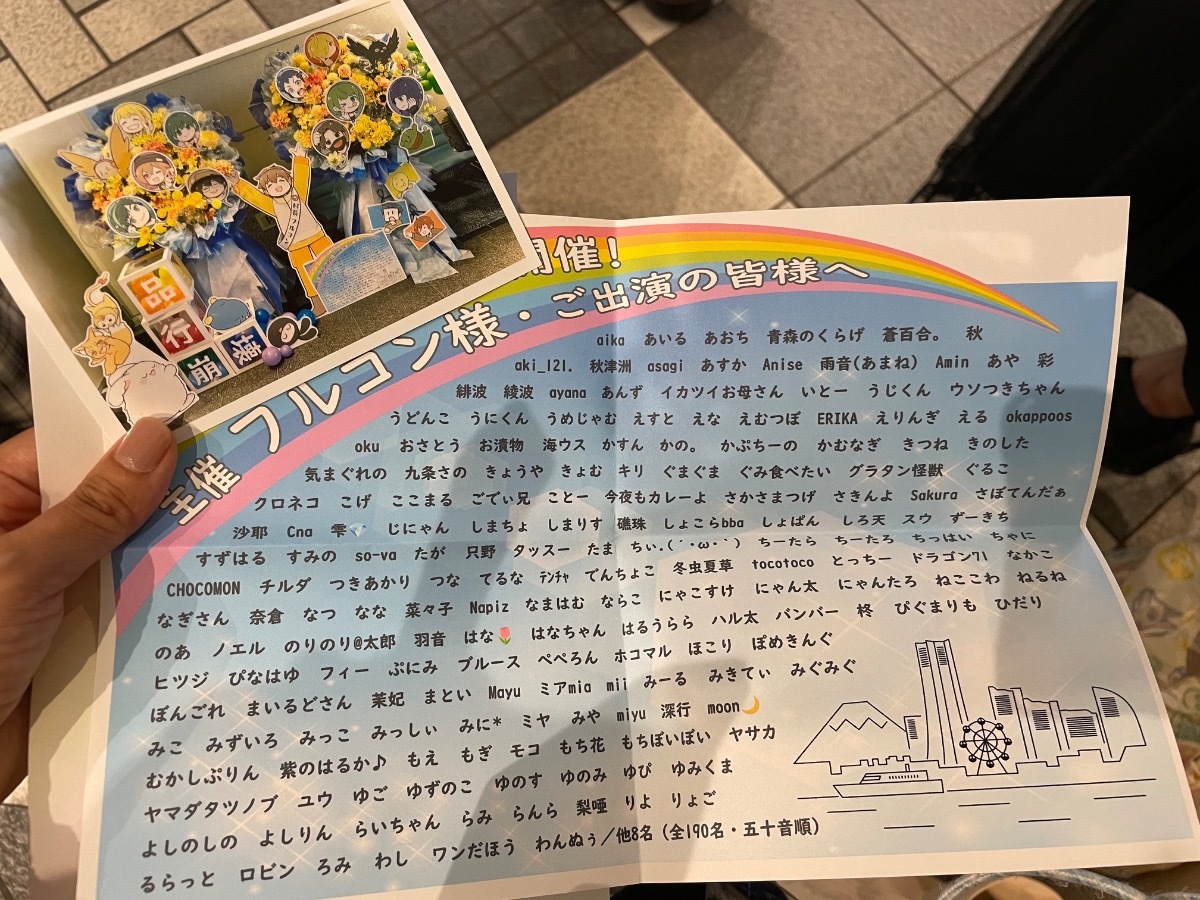 品
行
崩
壊
開催!
主催 フルコン様・ご出演の皆様へ
aika あいる あおち 青森のくらげ 蒼百合。 秋
aki_121. 秋津洲 asagi あすか Anise 雨音(あまね) Amin あや 彩
緋波 綾波 ayana あんず イカツイお母さん いとー うじくん ウソつきちゃん
うどんこ うにくん うめじゃむ えすと えな えむつぼ ERIKA えりんぎ える okappoos
oku おさとう お漬物 海ウス かすん かの。 かぷちーの かむなぎ きつね きのした
気まぐれの 九条さの きょうや きょむ キリ ぐまぐま ぐみ食べたい グラタン怪獣 ぐるこ
クロネコ こげ ここまる ごでぃ兄 ことー 今夜もカレーよ さかさまつげ さきんよ Sakura さぼてんだぁ
沙耶 Cna 雫💎 じにゃん しまちょ しまりす 礁珠 しょこらbba しょぱん しろ天 スウ ずーきち
すずはる すみの so-va たが 只野 タッスー たま ちぃ.(´・ω・`) ちーたら ちーたろ ちっはい ちゃに
CHOCOMON チルダ つきあかり つな てるな テンチャ でんちょこ 冬虫夏草 tocotoco とっちー ドラゴン71 なかこ
なぎさん 奈倉 なつ なな 菜々子 Napiz なまはむ ならこ にゃこすけ にゃん太 にゃんたろ ねここわ ねるね
のあ ノエル のりのり@太郎 羽音 はな🌷 はなちゃん はるうらら ハル太 バンバー 柊 ぴぐまりも ひだり
ヒツジ ぴなはゆ フィー ぷにみ ブルース ペペろん ホコマル ほこり ぽめきんぐ
ぽんごれ まいるどさん 茉妃 まとい Mayu ミアmia mii みーる みきてぃ みぐみぐ
みこ みずいろ みっこ みっしぃ みに* ミヤ みや miyu 深行 moon🌙
むかしぷりん 紫のはるか♪ もえ もぎ モコ もち花 もちぽいぽい ヤサカ
ヤマダタツノブ ユウ ゆご ゆずのこ ゆのす ゆのみ ゆぴ ゆみくま
よしのしの よしりん らいちゃん らみ らんら 梨唖 りよ りょご
るらっと ロビン ろみ わし ワンだほう わんぬぅ/他8名 (全190名・五十音順)